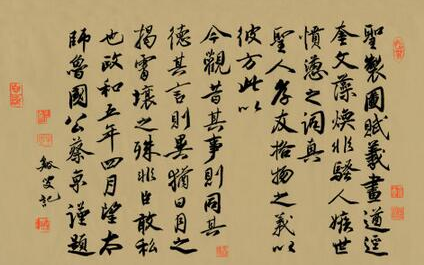 聖製圖賦義畫道逕
奎文藻煥非騷人嫉世
憤懣之詞真
聖人孝友格物之義以
彼方此以
今觀昔其事則同其
德其言則異猶日月之
揭霄壤之殊非臣敢私
也政和五年四月望太
師魯國公蔡京謹題
敏叟記